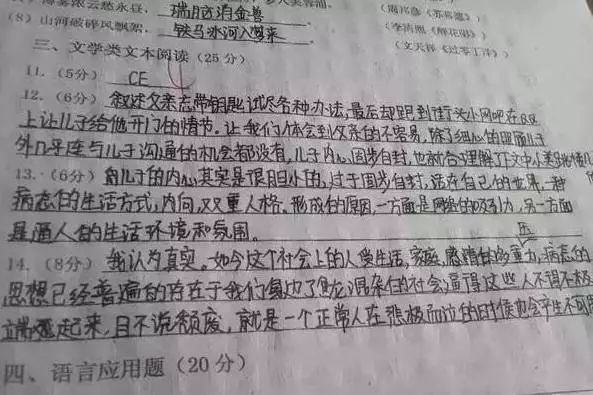 薄雾浓云愁永昼,瑞脑消金兽
(8) 山河破碎风飘絮, 铁马冰河入梦来
(周邦彦《苏幕遮》)
(李清照《醉花阴》)
(文天祥《过零丁洋》)
三、文学类文本阅读(25分)
11. (5分) CE
12. (6分) 叙述父亲忘带钥匙试尽各种办法,最后却跑到街头小网吧在QQ
上让儿子给他开门的情节。让我们体会到父亲的不容易,除了细心的照顾儿子
外几乎连与儿子沟通的机会都没有,儿子内心固步自封,也契合了理解了下文中人类
13. (6分) 儿子的内心其实是很胆小的,过于固步自封,活在自己的世界,一种
病态的生活方式,内向,双重人格。形成的原因,一方面是网络的吸引力,另一方面
是通人的生活环境和氛围。
14. (8分) 我认为真实。如今这个社会上的人受生活,家庭,感情的的重力,病态的
思想已经普遍的存在于我们身边了,混杂的社会逼得这些人不得不极
端起来,且不说颓废,就是一个正常人在悲极而泣的时候也会产生不可
四、语言应用题(20分)